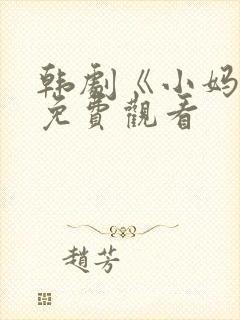 韩劇《小妈
免費觀看
趙芳